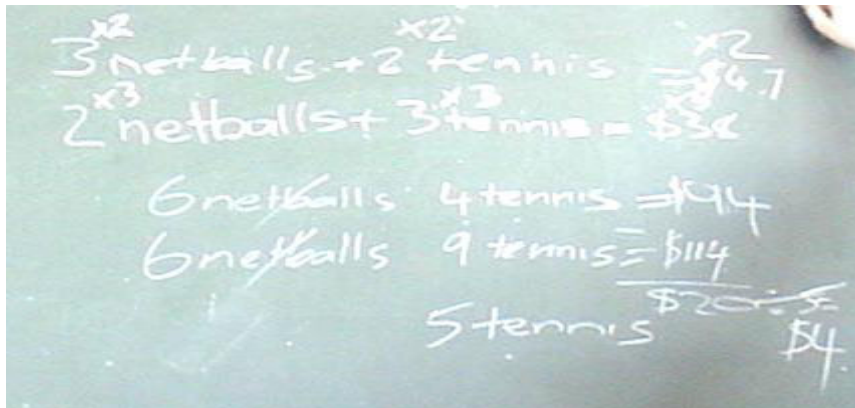 ×2 ×2 ×2
3 netballs + 2 tennis = $47
×3 ×3 ×3
2 netballs + 3 tennis = $38
6 netballs 4 tennis = $94
6 netballs 9 tennis = $114
$20 ÷ 5 =
5 tennis $4